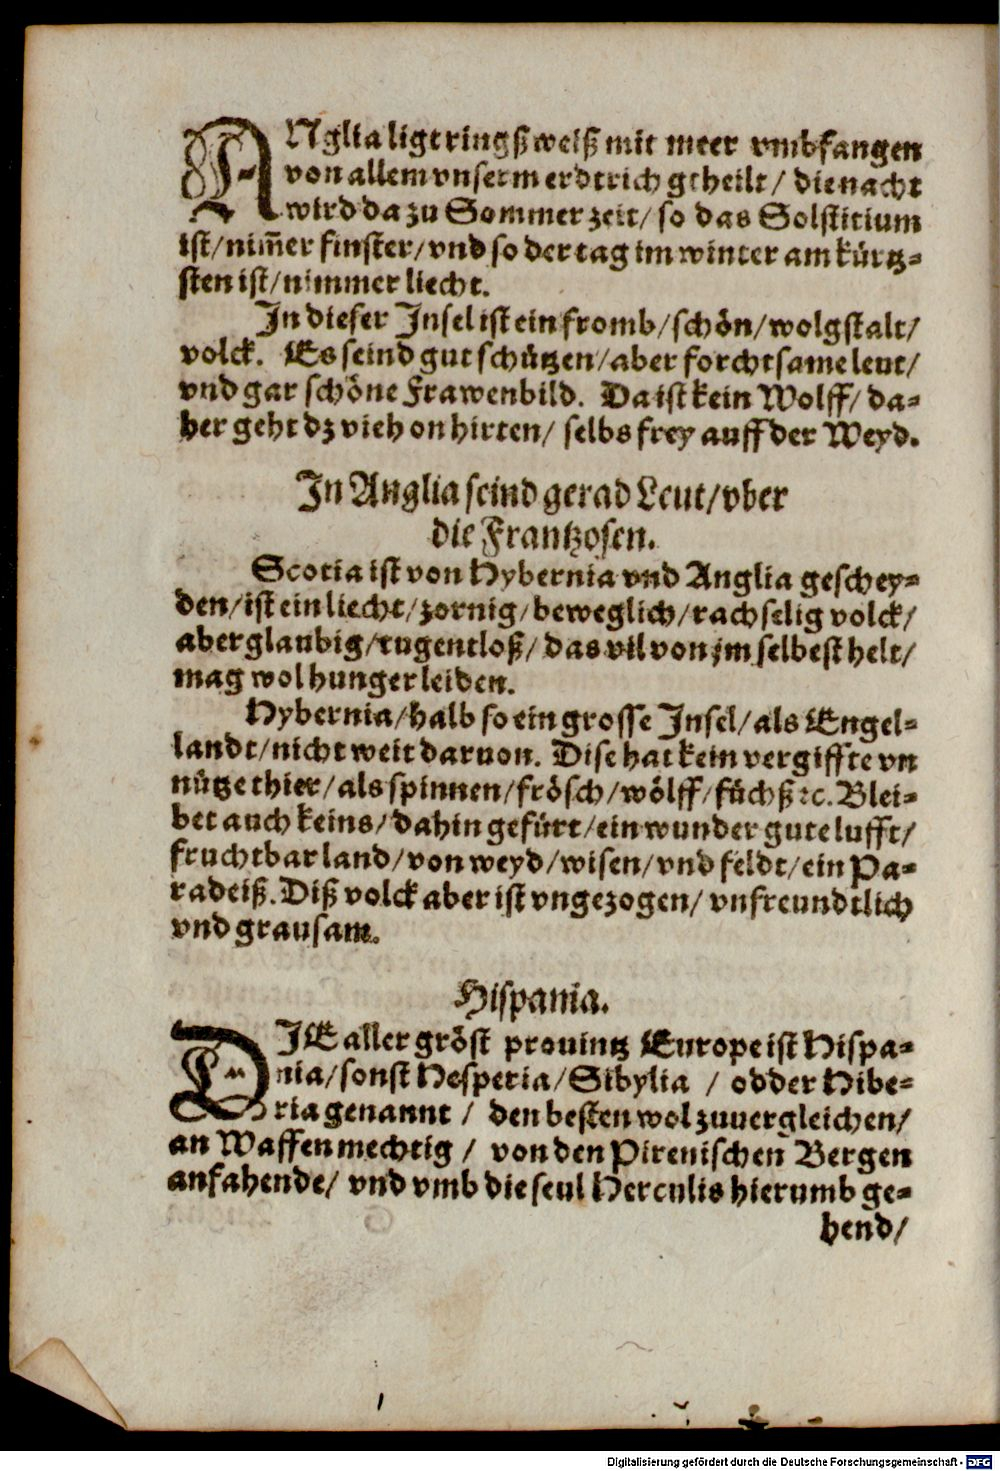 ANglia ligt ringßweiß mit meer vmbfangen
von allem vnserm erdtrich getheilt / die nacht
wird da zu Sommerzeit / so das Solstitium
ist / nim̃er finster / vnd so der tag im winter am kürtz-
sten ist / nimmer liecht.
In dieser Insel ist ein fromb / schön / wolgstalt /
volck. Es seind gut schützen / aber forchtsame leut /
vnd gar schöne Frawenbild. Da ist kein Wolff / da-
her geht dz vieh on hirten / selbs frey auff der Weyd.
In Anglia seind gerad Leut / vber
die Frantzosen.
Scotia ist von Hybernia vnd Anglia geschey-
den / ist ein liecht / zornig / beweglich / rachselig volck /
aberglaubig / tugentloß / das vil von jm selbest helt /
mag wol hunger leiden.
Hybernia / halb so ein grosse Insel / als Engel-
landt / nicht weit daruon. Dise hat kein vergiffte vn
nütze thier / als spinnen / frösch / wölff / füchß ꝛc. Blei-
bet auch keins / dahin gefürt / ein wunder gute lufft /
fruchtbar land / von weyd / wisen / vnd feldt / ein Pa-
radeiß. Diß volck aber ist vngezogen / vnfreundtlich
vnd grausam.
Hispania.
DIE aller gröst prouintz Europe ist Hispa-
nia / sonst Hesperia / Sibylia / odder Hibe-
ria genannt / den besten wol zuuergleichen /
an Waffen mechtig / von den Pirenischen Bergen
anfahende / vnd vmb die seul Herculis hierumb ge-
hend /
Digitalisierung gefördert durch die Deutsche Forschungsgemeinschaft - DFG